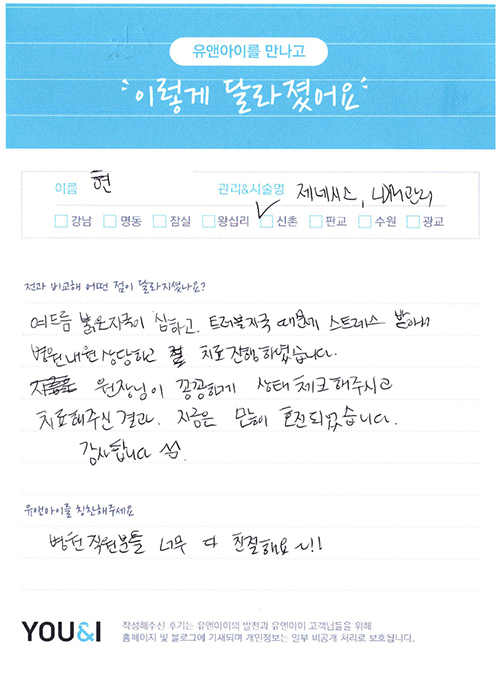 유앤아이를 만나고
이렇게 달라졌어요
이름 현 관리&시술명 제네시스, LDM관리
강남 명동 잠실 왕십리 신촌 판교 수원 광교
전과 비교해 어떤 점이 달라지셨나요?
여드름 붉은자국이 심하고. 트러블자국 때문에 스트레스 받아서
병원내원상담하고 치료진행하였습니다.
원장님이 꼼꼼하게 상태체크해주시고
치료해주신결과. 지금은 많이 호전되었습니다.
감사합니다
유앤아이를 칭찬해주세요
병원직원분들 너무 다 친절해요~!!
YOU&I 작성해주신 후기는 유앤아이의 발전과 유앤아이 고객님들을 위해
홈페이지 및 블로그에 기재되며 개인정보는 일부 비공개 처리로 보호됩니다.